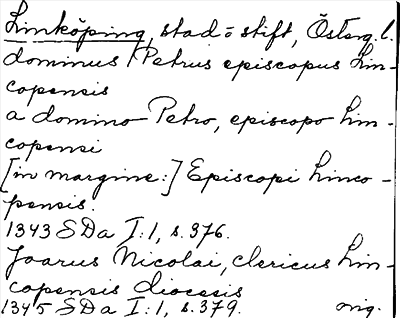 Linköping, stad = stift, Österg. l.
dominus Petrus episcopus Lin-
copensis
a domino Petro, episcopo Lin-
copensi
[in margine:] Episcopi Linco-
pensis.
1343 SDa I:1, s. 376.
Joarus Nicolai, clericus Lin-
copensis diocesis
1345 SDa I:1, s. 379. orig.